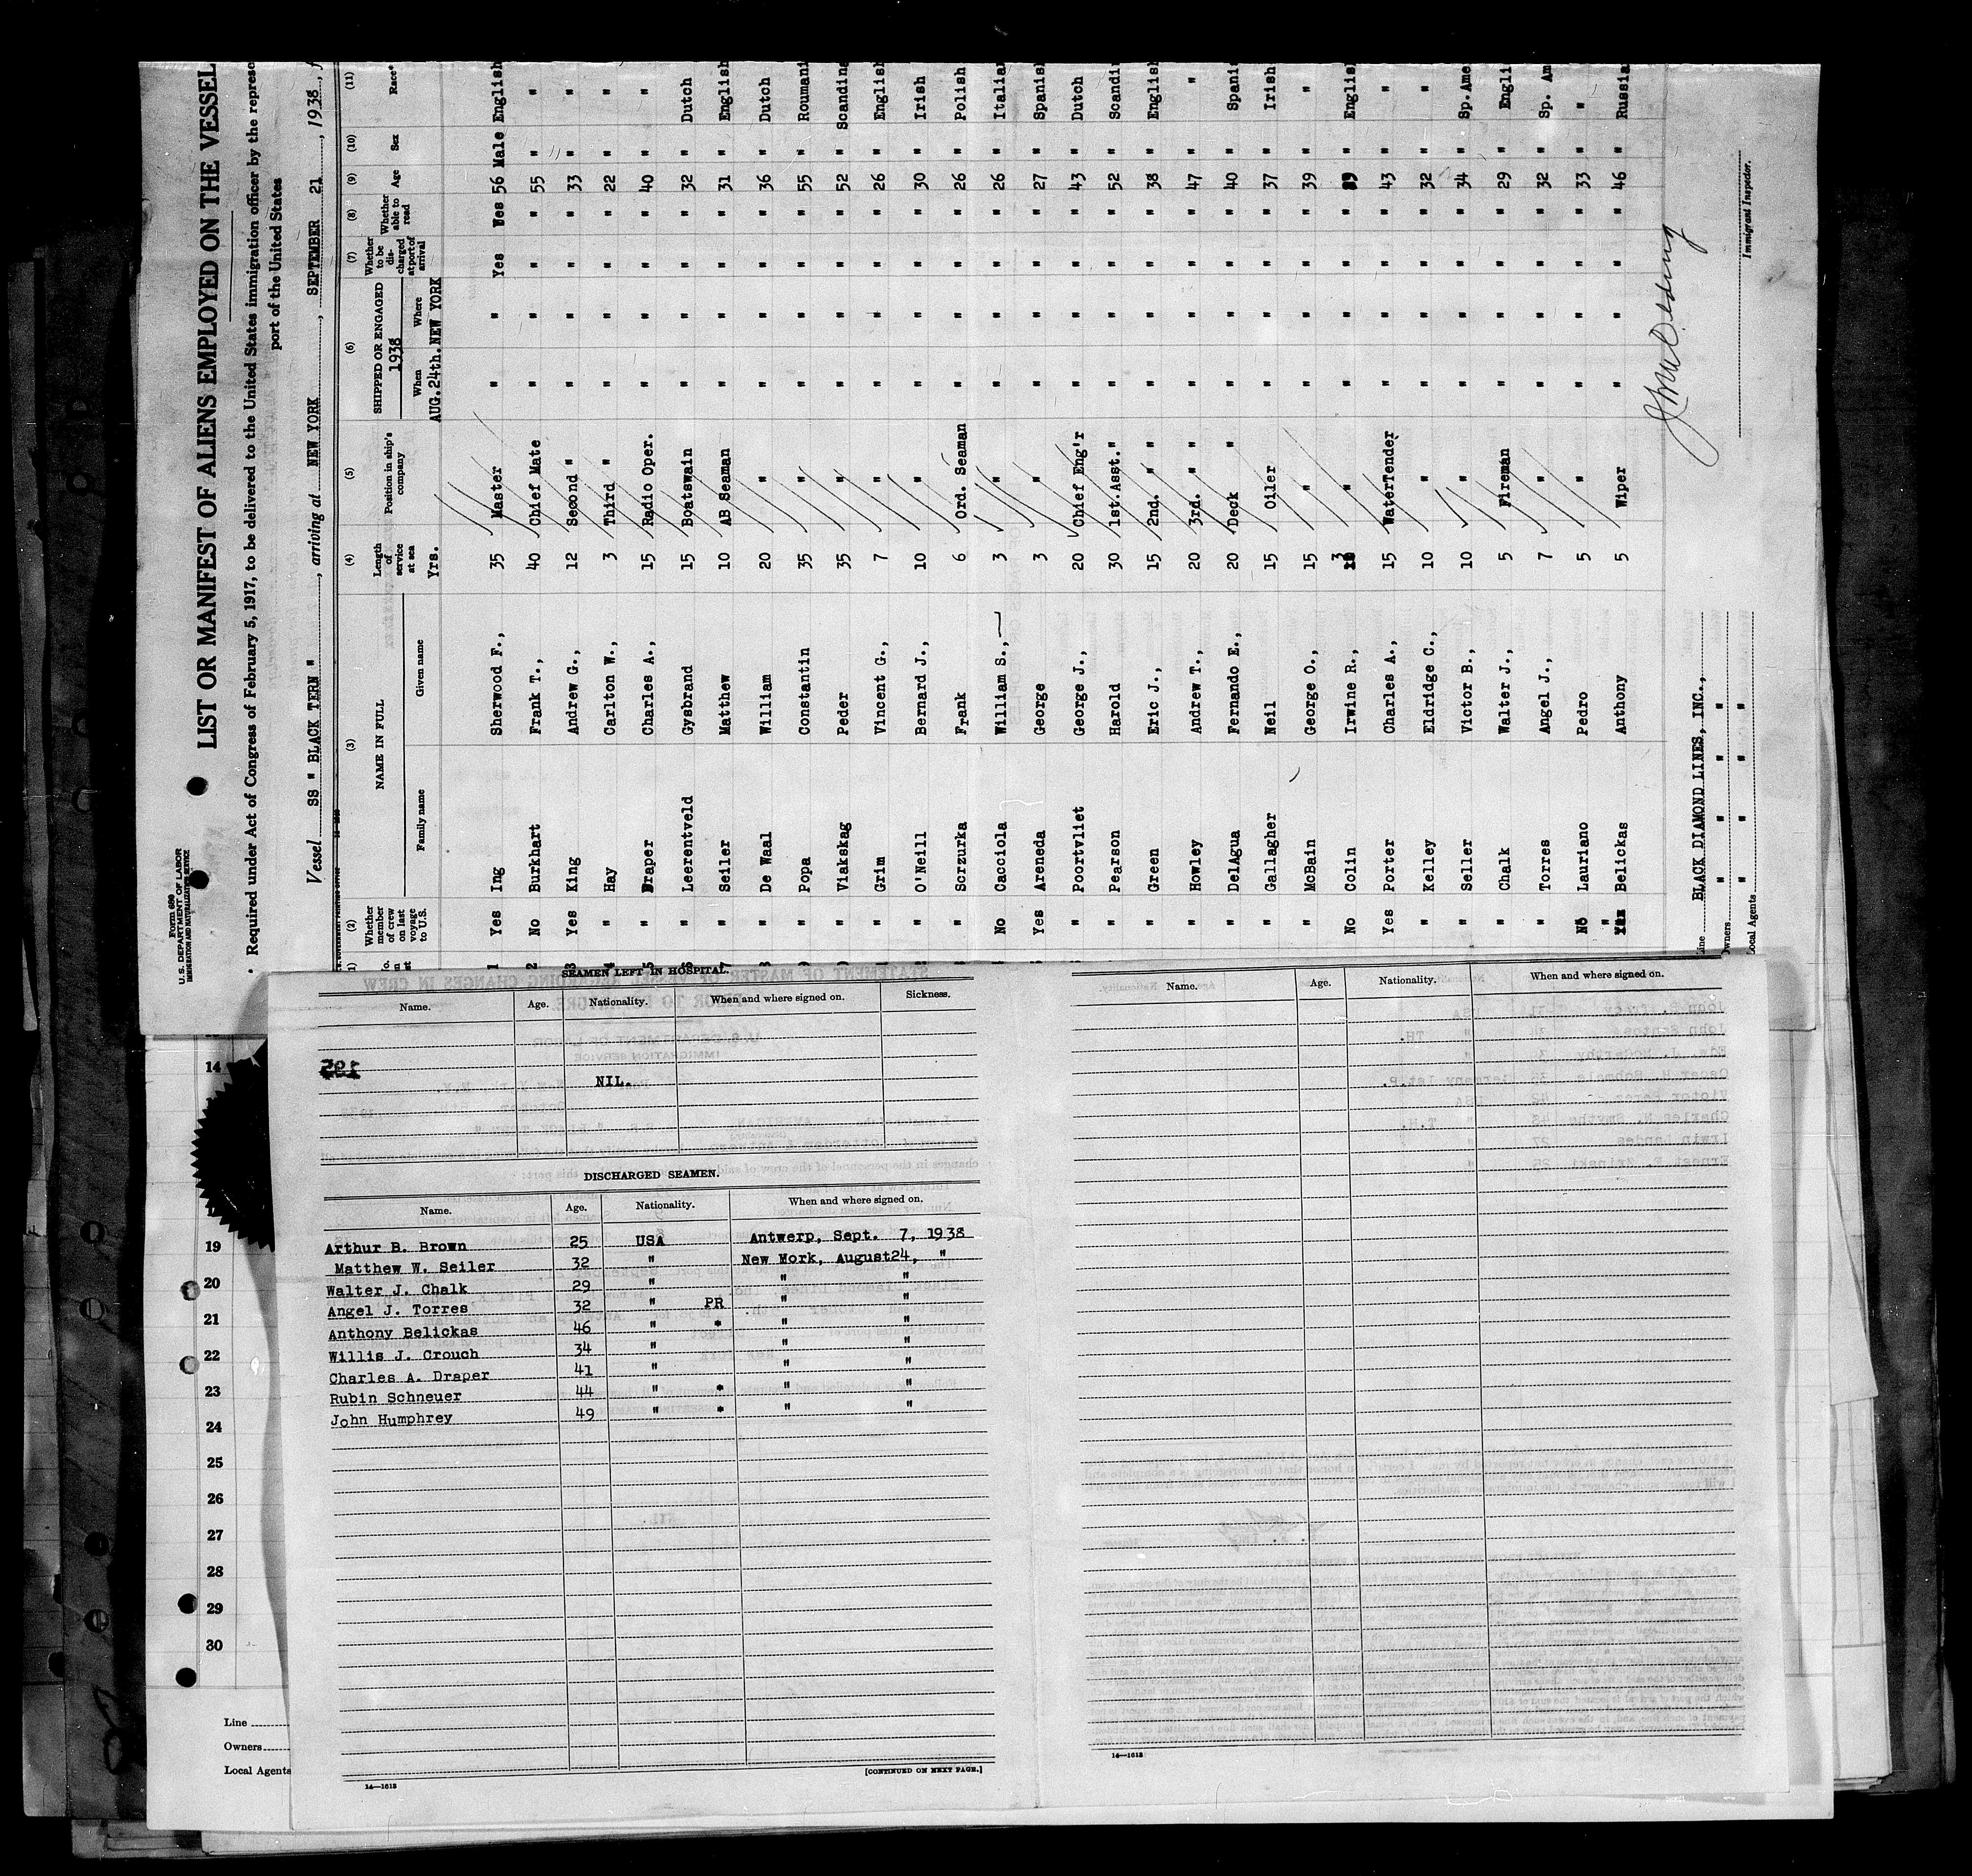 Form 680
U. S. DEPARTMENT OF LABOR
IMMIGRATION AND NATURALIZATION SERVICE
LIST OR MANIFEST OF ALIENS EMPLOYED ON THE VESSEL
Required under Act of Congress of February 5, 1917, to be delivered to the United States immigration officer by the represe
port of the United States
Vessel SS " BLACK TERN " , arriving at NEW YORK , SEPTEMBER 21 , 1938
(2) (3) (4) (5) (6) (7) (8) (9) (10) (11)
Whether member of crew on last voyage to U.S. NAME IN FULL Family name Given name Length of service at sea Position in ship's company SHIPPED OR ENGAGED 1938 When Where Whether to be discharged at port of arrival Whether able to read Age Sex Race*
Yrs. AUG.24th. NEW YORK
1 Yes Ing Sherwood F., 35 Master " " Yes Wes 56 Male English
2 No Burkhart Frank T., 40 Chief Mate " " " " 55 " "
3 Yes King Andrew G., 12 Second " " " " " 33 " "
4 " Hay Carlton W., 3 Third " " " " " 22 " "
5 " Draper Charles A., 15 Radio Oper. " " " " 40 " "
6 " Leerentveld Gysbrand 15 Boatswain " " " " 32 " Dutch
7 " Seiler Matthew 10 AB Seaman " " " " 31 " English
8 " De Waal William 20 " " " " " 36 " Dutch
9 " Popa Constantin 35 " " " " " 55 " Roumani
" Viakskag Peder 35 " " " " " 52 " Scandina
" Grim Vincent G., 7 " " " " " 26 " English
" O'Neill Bernard J., 10 " " " " " 30 " Irish
" Scrzurka Frank 6 Ord. Seaman " " " " 26 " Polish
No Cacciola William S., 3 " " " " " 26 " Italian
Yes Areneda George 3 " " " " " 27 " Spanis
" Poortvliet George J., 20 Chief Eng'r " " " " 43 " Dutch
" Pearson Harold 30 1st.Asst." " " " " 52 " Scandi
" Green Eric J., 15 2nd. " " " " " " 38 " English
" Howley Andrew T., 20 3rd. " " " " " " 47 " "
" DelAgua Fernando E., 20 Deck " " " " " 40 " Spani
" Gallagher Neil 15 Oiler " " " " 37 " Irish
" McBain George O., 15 " " " " " 39 " "
No Colin Irwine R., 3 " " " " " " Englis
Yes Porter Charles A., 15 WaterTender " " " " 43 " "
" Kelley Eldridge C., 10 " " " " " 32 " "
" Seller Victor B., 10 " " " " " 34 " Sp.Ame
" Chalk Walter J., 5 Fireman " " " " 29 " Engli
" Torres Angel J., 7 " " " " " 32 " Sp. Am
No Lauriano Pedro 5 " " " " " 33 " "
" Belickas Anthony 5 Wiper " " " " 46 " Russia
Line BLACK DIAMOND LINES, INC.,
Owners " " " "
Local Agents " " " "
Immigrant Inspector.
SEAMEN LEFT IN HOSPITAL.
Name. Age. Nationality. When and where signed on. Sickness.
NIL.
DISCHARGED SEAMEN.
Name. Age. Nationality. When and where signed on.
Arthur B. Brown 25 USA Antwerp, Sept. 7, 1938
Matthew W. Seiler 32 " New Work, August24, "
Walter J. Chalk 29 " " "
Angel J. Torres 32 " PR " "
Anthony Belickas 46 " * " "
Willis J. Crouch 34 " " "
Charles A. Draper 41 " " "
Rubin Schneuer 44 " * " "
John Humphrey 49 " * " "
14—1613
[CONTINUED ON NEXT PAGE.]
Name. Age. Nationality. When and where signed on.
14—1613
14
19
20
21
22
23
24
25
26
27
28
29
30
Line
Owners
Local Agents